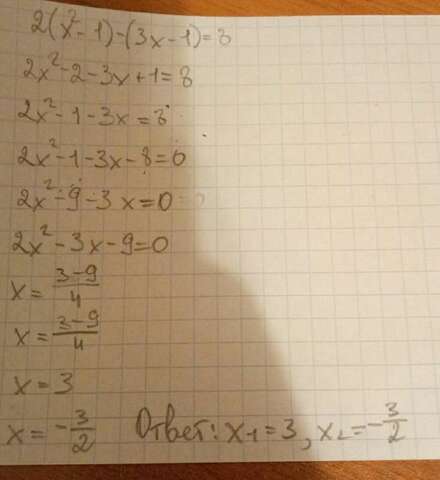 2(x²-1)-(3x-1)=8
2x²-2-3x+1=8
2x²-1-3x=8
2x²-1-3x-8=0
2x²-9-3x=0
2x²-3x-9=0
x=(3-9)/4
x=(3-9)/4
x=3
x=-3/2 Ответ: x1=3, x2=-3/2